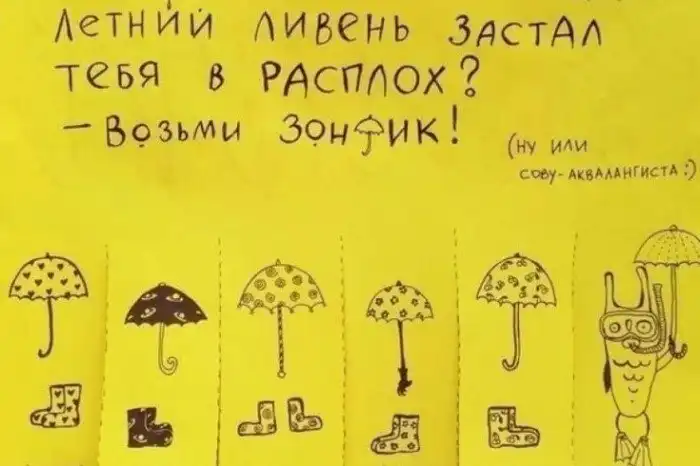 Летний ливень застал
тебя в расплох?
- Возьми зонтик!
(ну или
сову-аквалангиста :)